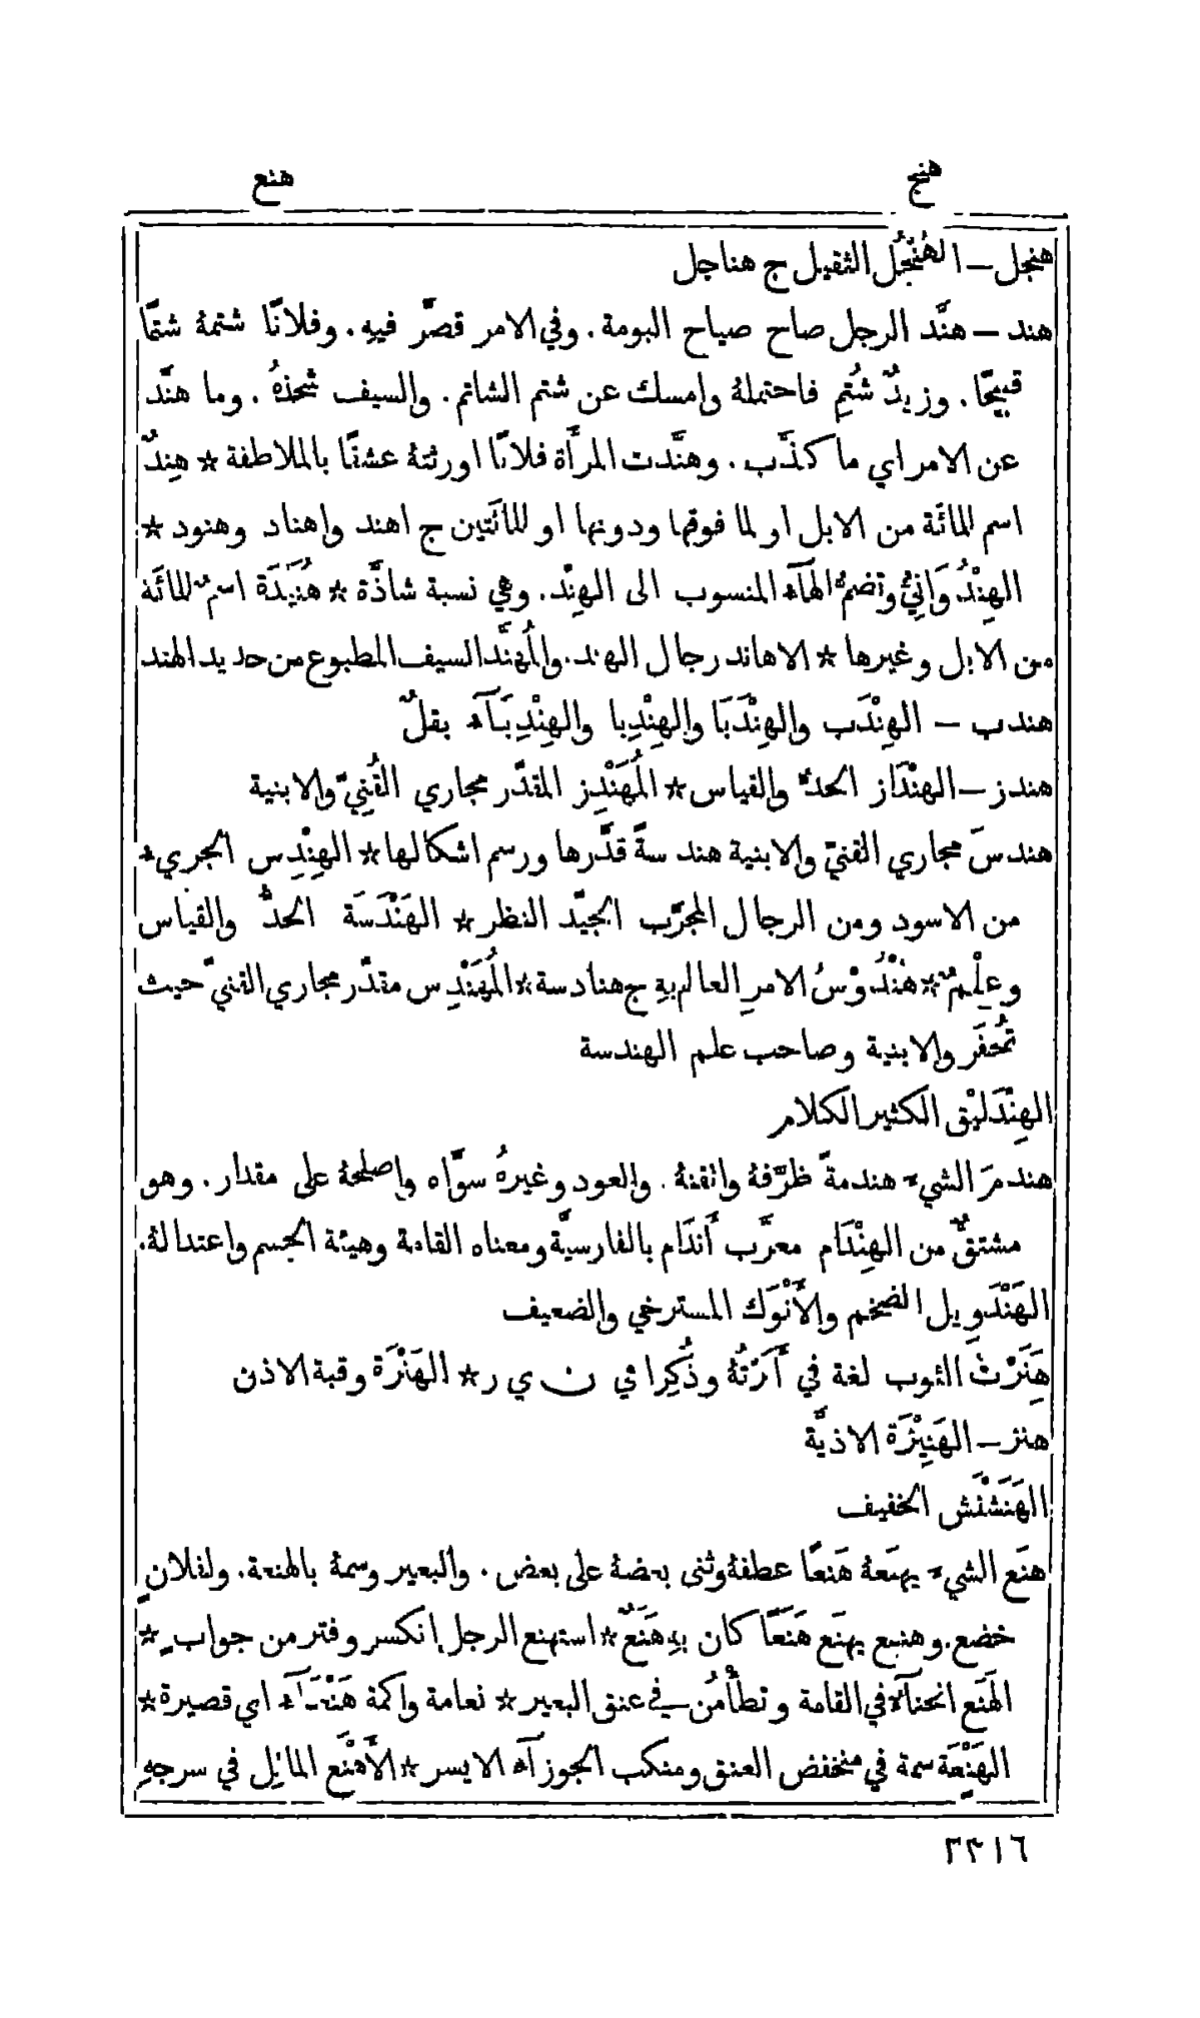 هنج
هنع
هنجل — الهُنْجُل الثقيل ج هناجل
هند — هنَّد الرجل صاح صياح البومة. وفي الامر قصَّر فيهِ. وفلانًا شتمهُ شتمًا
قبيحًا. وزيدٌ شُتِم فاحتملهُ وامسك عن شتم الشاتم. والسيف شحذهُ. وما هنَّد
عن الامر اي ما كذَّب. وهنَّدت المرأَة فلانًا اورثتهُ عشقًا بالملاطفة * هِندٌ
اسم للمائَة من الابل او لما فوقها ودونها او للمائَتين ج اهند واهناد وهنود *
الهِنْدُوَانِيُّ وتضمُّ الهآء المنسوب الى الهِنْد. وهي نسبة شاذَّة * هُنَيْدَة اسمٌ للمائَة
من الابل وغيرها * الاهاند رجال الهند. والمُهنَّد السيف المطبوع من حديد الهند
هندب — الهِنْدَب والهِنْدَبَا والهِنْدِبا والهِنْدِبَآء بقلٌ
هندز — الهنْدَاز الحدُّ والقياس * المُهَنْدِز المقدّر مجاري القُنِيّ والابنية
هندسَ مجاري القنيّ والابنية هندسةً قدَّرها ورسم اشكالها * الهِنْدِس الجريء
من الاسود ومن الرجال المجرَّب الجيّد النظر * الهَنْدَسَة الحدُّ والقياس
وعِلْمٌ * هُنْدُوْسُ الامرِ العالم بهِ ج هنادسة * المُهَنْدِس مقدّر مجاري القنيّ حيث
تُحفَر والابنية وصاحب علم الهندسة
الهِنْدَلِيْق الكثير الكلام
هندمَ الشيء هندمةً ظرَّفهُ واتقنهُ. والعود وغيرهُ سوَّاه واصلحهُ على مقدار. وهو
مشتقٌّ من الهِنْدَام معرَّب أَندَام بالفارسيَّة ومعناه القامة وهيئَة الجسم واعتدالهُ.
الهَنْدَوِيل الضخم والأَنْوَك المسترخي والضعيف
هَنَرْتُ الثوب لغة في أَنَرْتُهُ وذُكِرا في ن ي ر * الهَنْرَة وقبة الاذن
هنز — الهَنِيْزَة الاذيَّة
الهَنَشْنَش الخفيف
هنَع الشيء يهنَعهُ هَنعًا عطفهُ وثنى بعضهُ على بعض. والبعير وسمهُ بالهنعة. ولفلانٍ
خضع. وهنِع يهنَع هَنَعًا كان بهِ هَنَعٌ * استهنع الرجل إنكسر وفتر من جوابٍ *
الهَنَع انحنآءٌ في القامة وتطأْمُن في عنق البعير * نعامة واكمة هَنْعَآء اي قصيرة *
الهَنْعَة سمة في منخفض العنق ومنكب الجوزآء الايسر * الأَهْنَع المائل في سرجهِ
٢٢١٦